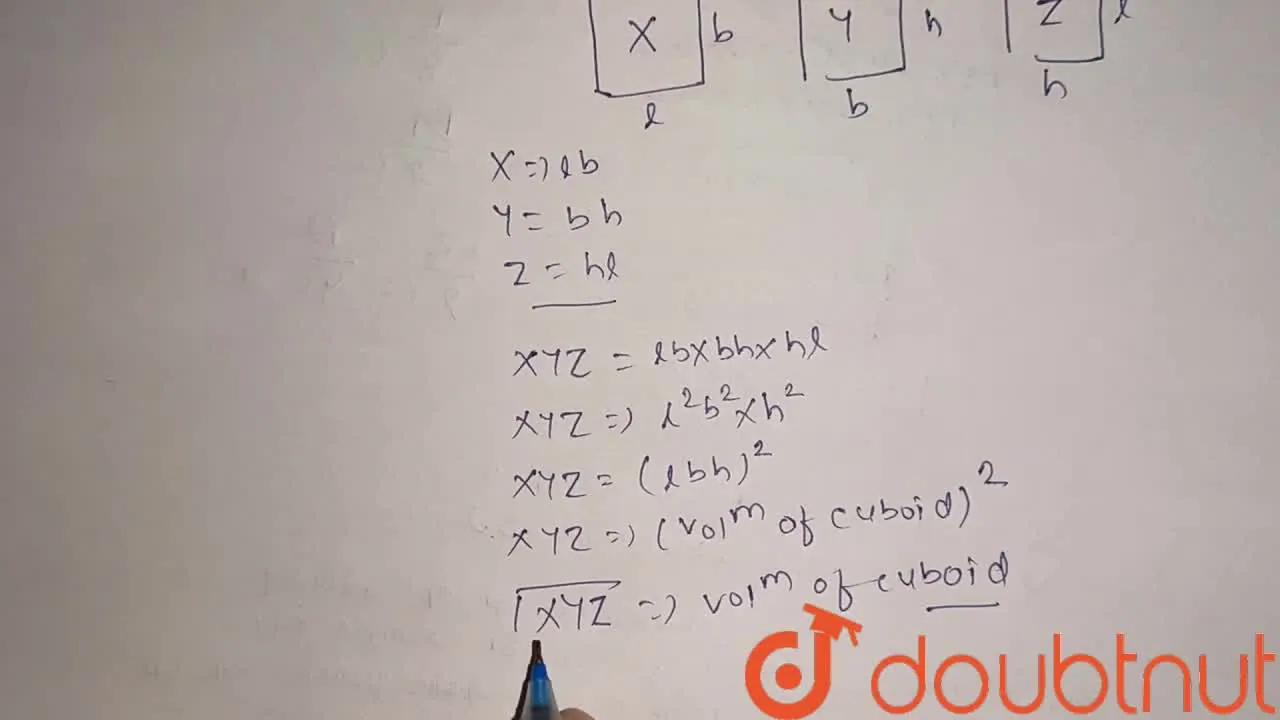 X b Y h Z l
l b h
X => lb
Y = bh
Z = hl
XYZ = lb×bh×hl
XYZ => l²b²×h²
XYZ = (lbh)²
XYZ => (volᵐ of cuboid)²
√XYZ => volᵐ of cuboid
doubtnut